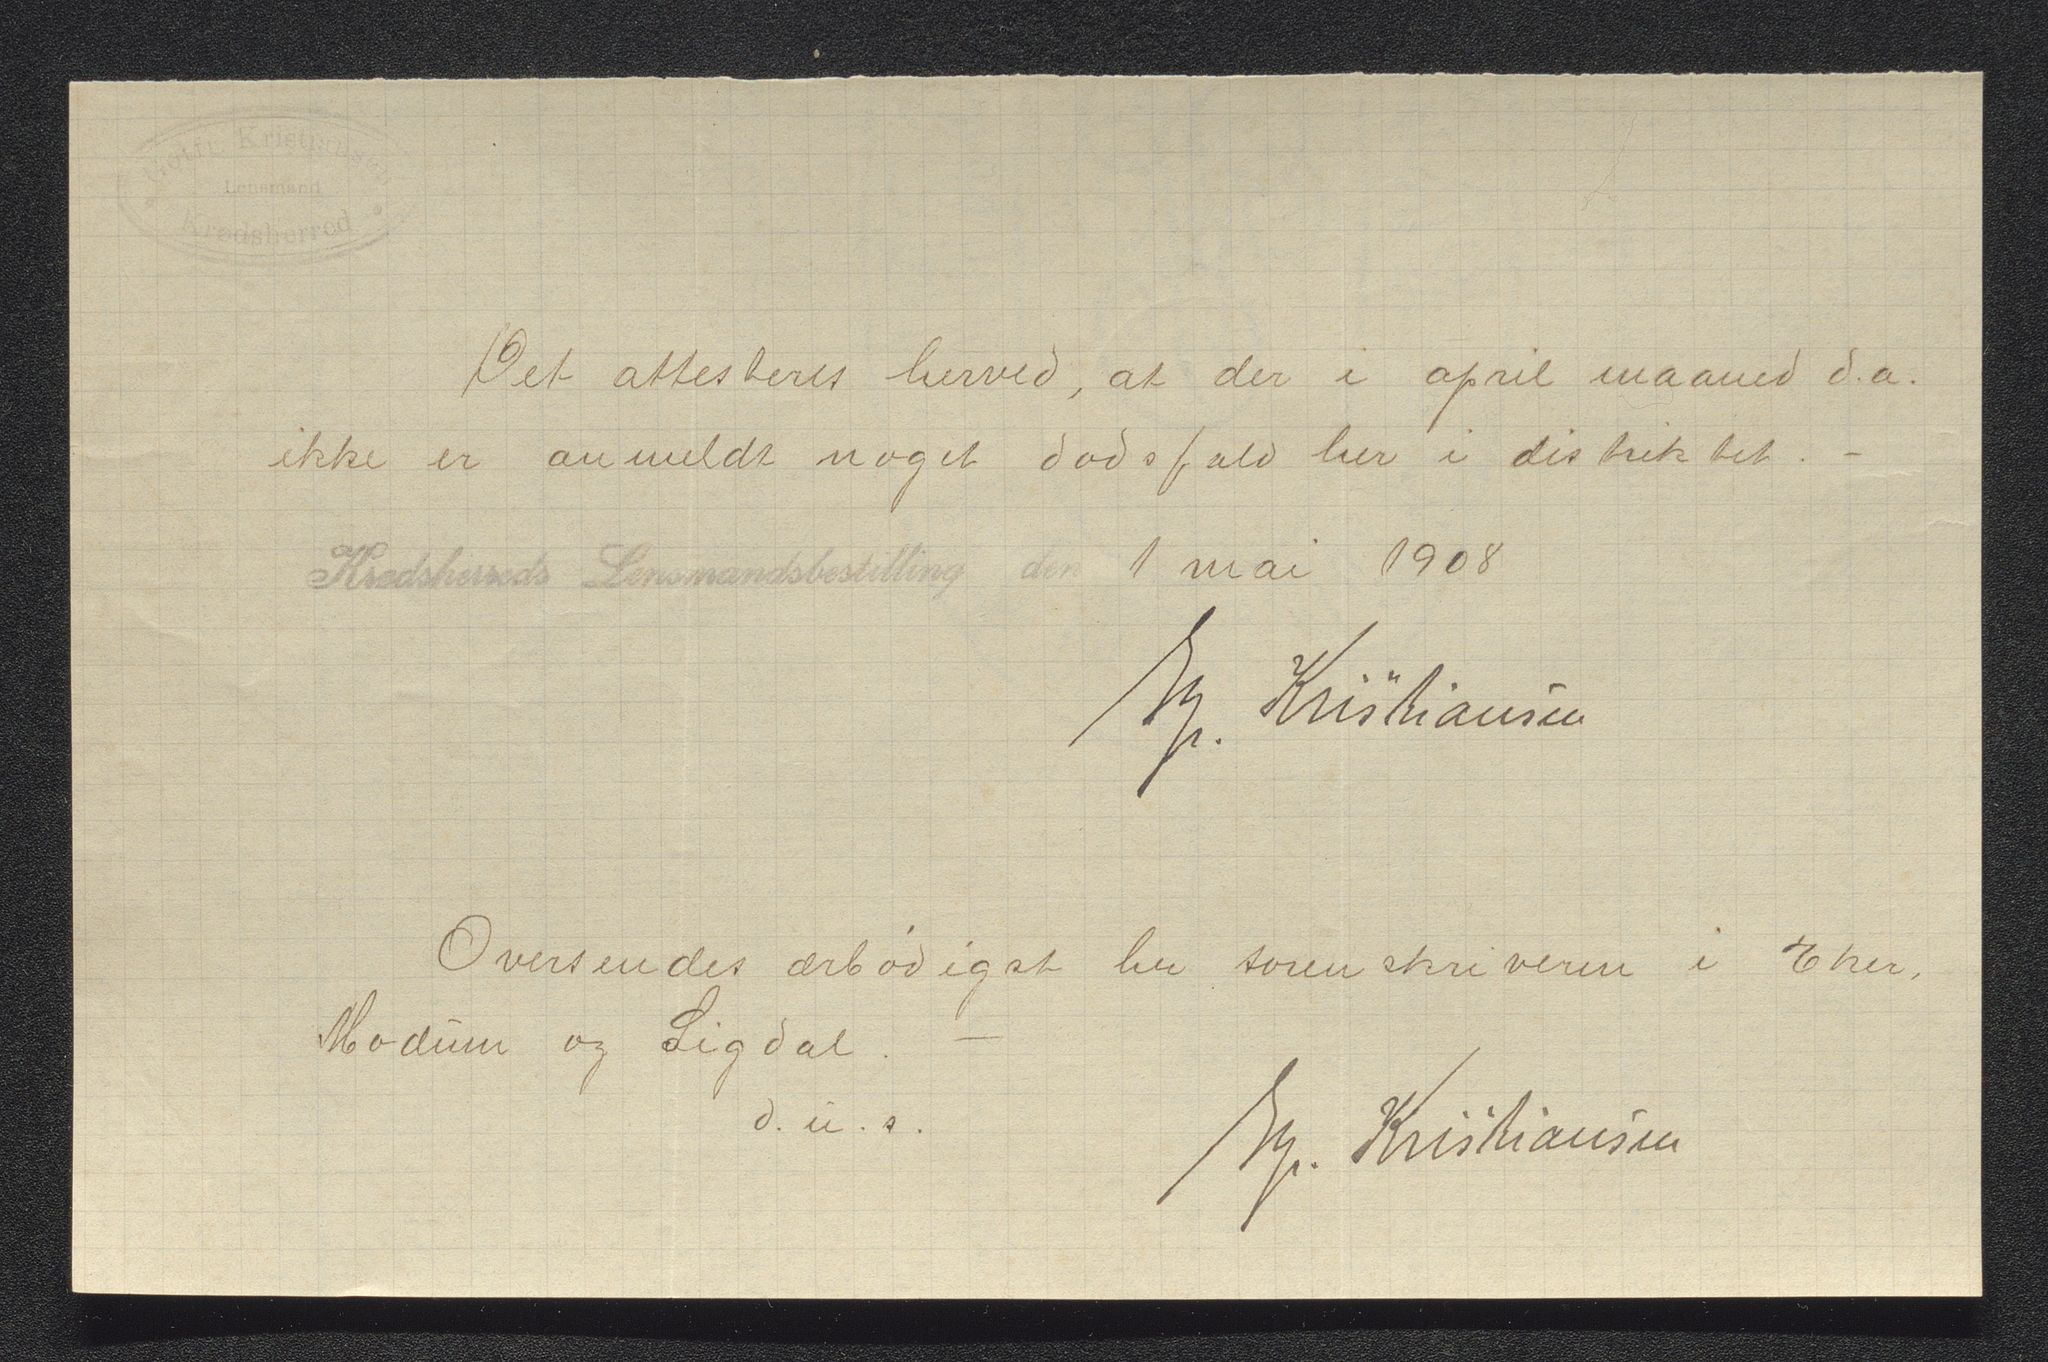 Gottfr. Kristiansen
Lensmand
Krødsherred
Det attesteres herved, at der i april maaned d.a.
ikke er anmeldt noget dødsfald her i distriktet. –
Krødsherreds Lensmandsbestilling den 1 mai 1908
Kristiansen
Oversendes ærbødigst hr sorenskriveren i Eker,
Modum og Sigdal. –
d. u. s.
Kristiansen